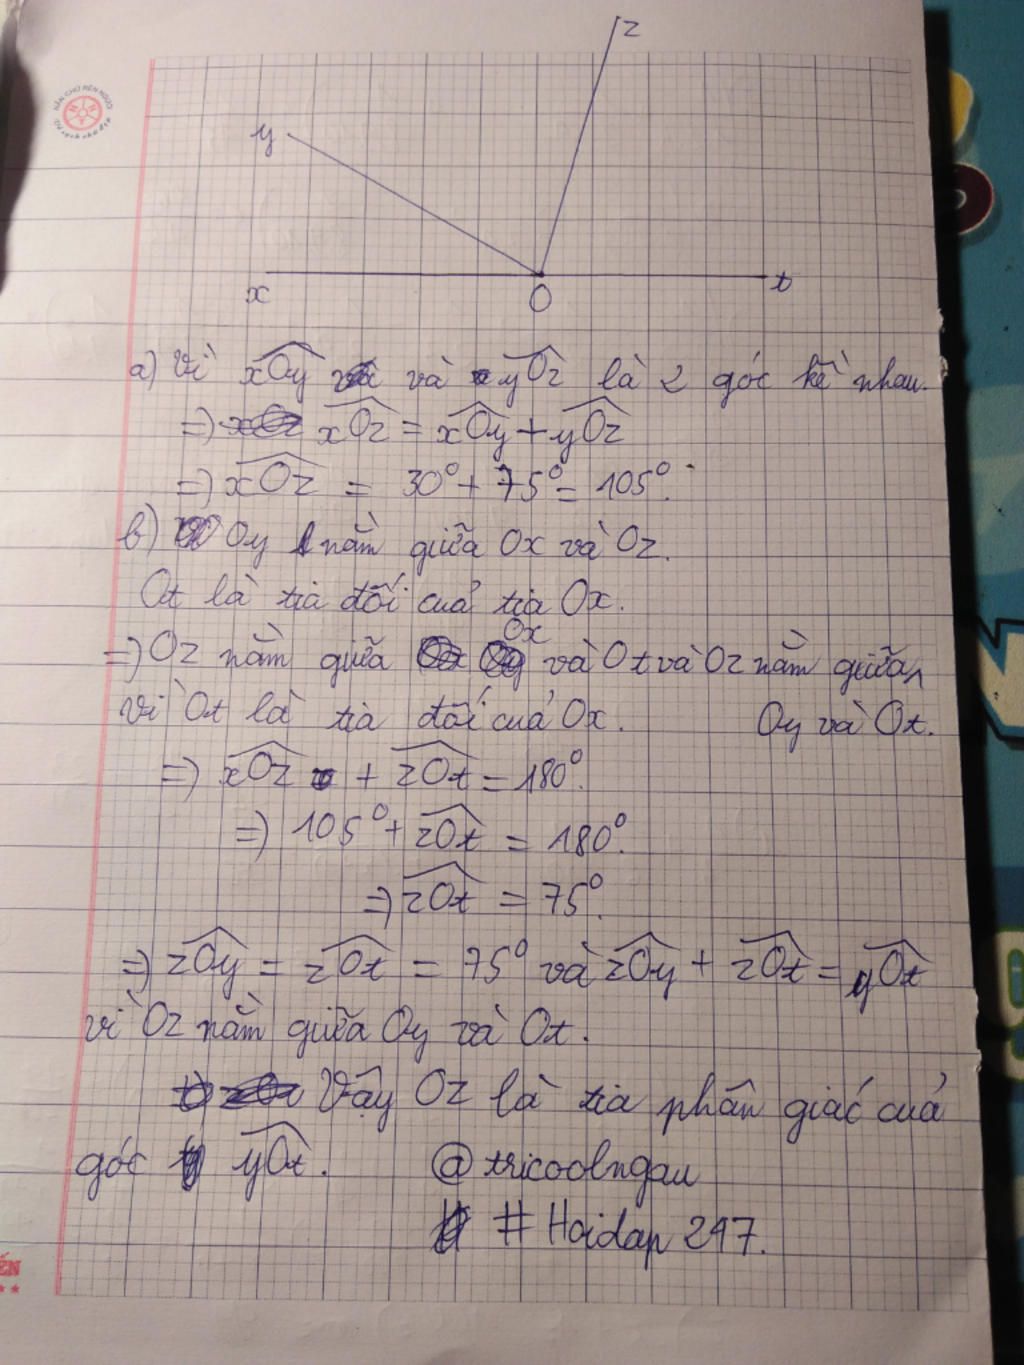 NÉN CHỮ RÈN NGƯỜI
z
y
x
O
t
a) Vì xOy và yOz là 2 góc kề nhau.
=) xOz = xOy + yOz
=) xOz = 30° + 75° = 105°.
b) Oy nằm giữa Ox và Oz.
Ot là tia đối cuả tia Ox.
=) Oz nằm giữa Ox và Ot và Oz nằm giữa
vì Ot là tia đối cuả Ox. Oy và Ot.
=) xOz + zOt = 180°.
=) 105° + zOt = 180°.
=) zOt = 75°.
=) zOy = zOt = 75° và zOy + zOt = yOt
vì Oz nằm giữa Oy và Ot.
Vậy Oz là tia phân giác cuả
góc yOt. @tricoolngau
# Hoidap 247.
ẾN